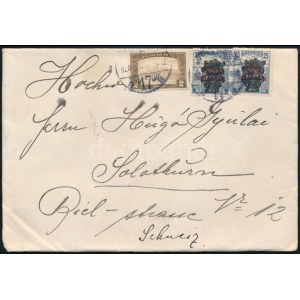 Hochw
Herrn Hugó Gyulai
Solothurn
Biel-strasse Nr 12
Schweiz